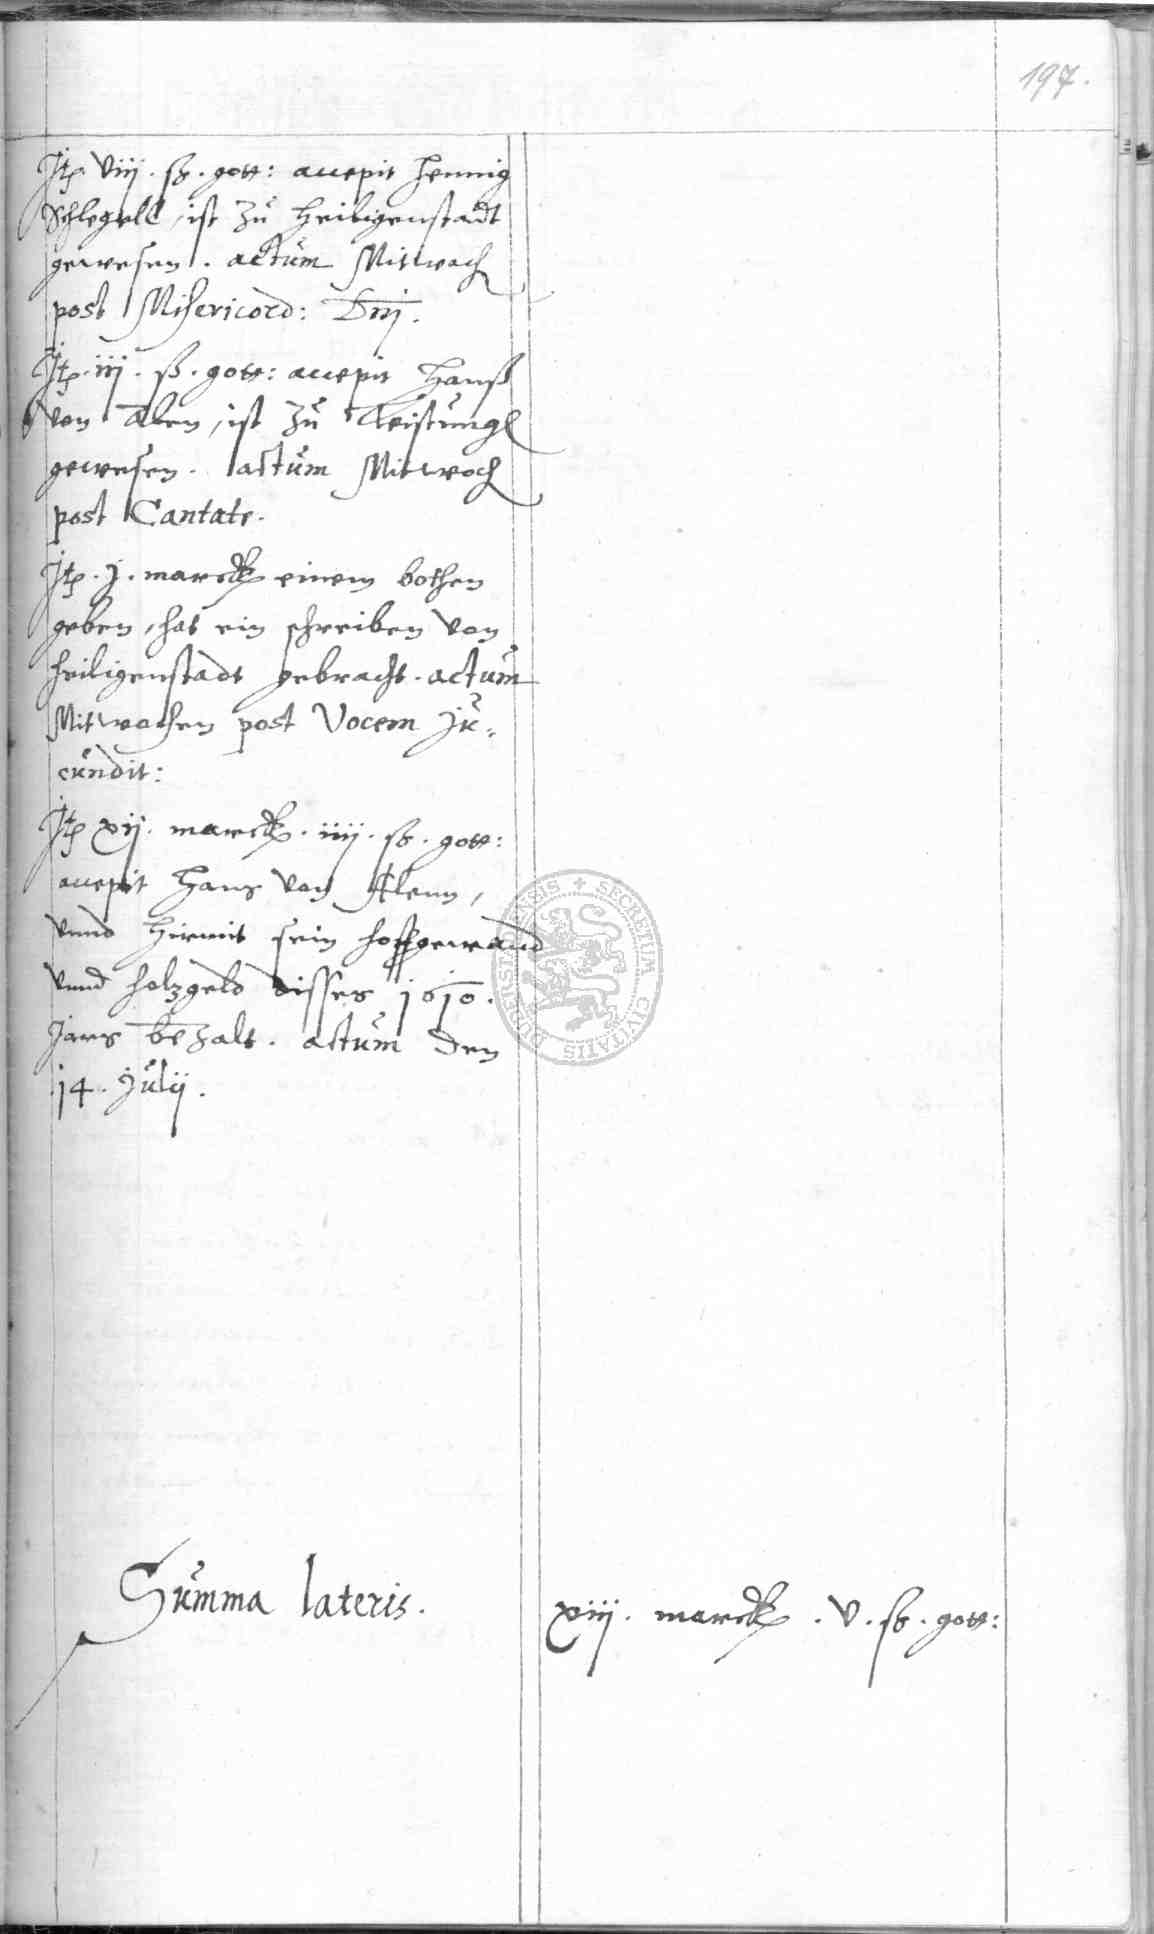 197.
Itz viij. ß. gott: accepit Hennig
Schlegell, ist zu Heiligenstadt
gewesen. actum Mitwoch
post Misericord: Dnj.
Itz. iij. ß. gott: accepit Hanß
von Alen, ist zu Teistungk
gewesen. actum Mitwoch
post Cantate.
Itz. j. marck einem bothen
geben, hat ein schreiben von
Heiligenstadt gebracht. actum
Mitwochen post Vocem Ju-
cundit:
Itz xij. marck. iiij. ß. gott:
accepit Hans von Alenn,
vnnd hiemit sein hoffgewand
vnnd holzgeld disses 1610.
Jars bezalt. actum den
14. Julij.
SECRETUM CIVITATIS DUDERSTADENSIS
Summa lateris.
xiij. marck. v. ß. gott: